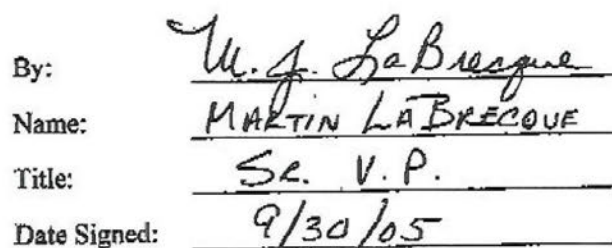 By: M. J. LaBrecque
Name: MARTIN LABRECQUE
Title: Sr. V.P.
Date Signed: 9/30/05